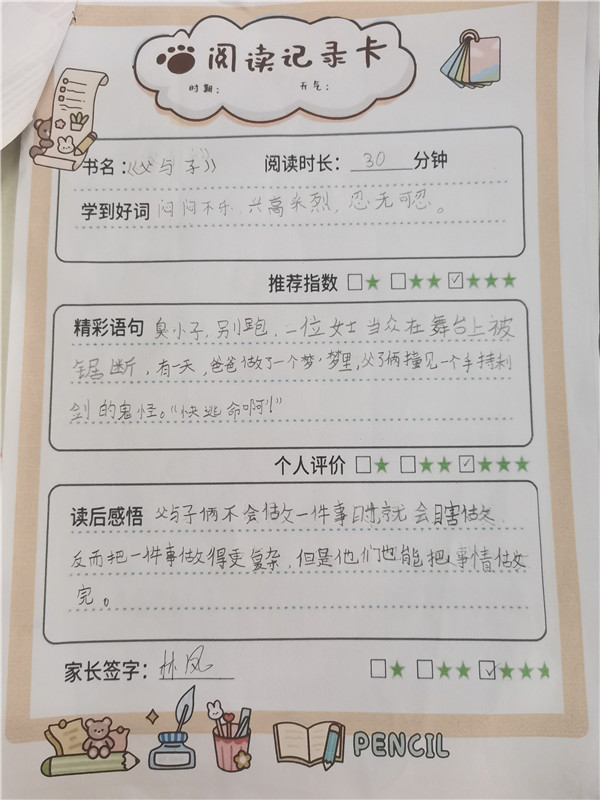 阅读记录卡
时期： 天气：
书名：《父与子》 阅读时长：30分钟
学到好词 闷闷不乐，兴高采烈，忍无可忍。
推荐指数 □★ □★★ ☑★★★
精彩语句 臭小子，别跑，一位女士当众在舞台上被
锯断，有一天，爸爸做了一个梦，梦里，父子俩撞见一个手持利
剑的鬼怪。“快逃命啊！”
个人评价 □★ □★★ ☑★★★
读后感悟 父与子俩不会做一件事时就会瞎做
反而把一件事做得更复杂，但是他们也能把事情做
完。
家长签字：林凤 □★ □★★ ☑★★★
PENCIL